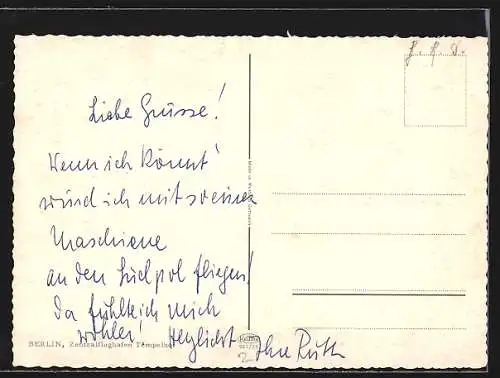 Liebe Grüsse!
Wenn ich könnt'
würd ich mit so einer
Maschiene
an den Südpol fliegen!
Da fühlte ich mich
wohler! Herzlichst
Ihre Ruth
BERLIN, Zentralflughafen Tempelhof